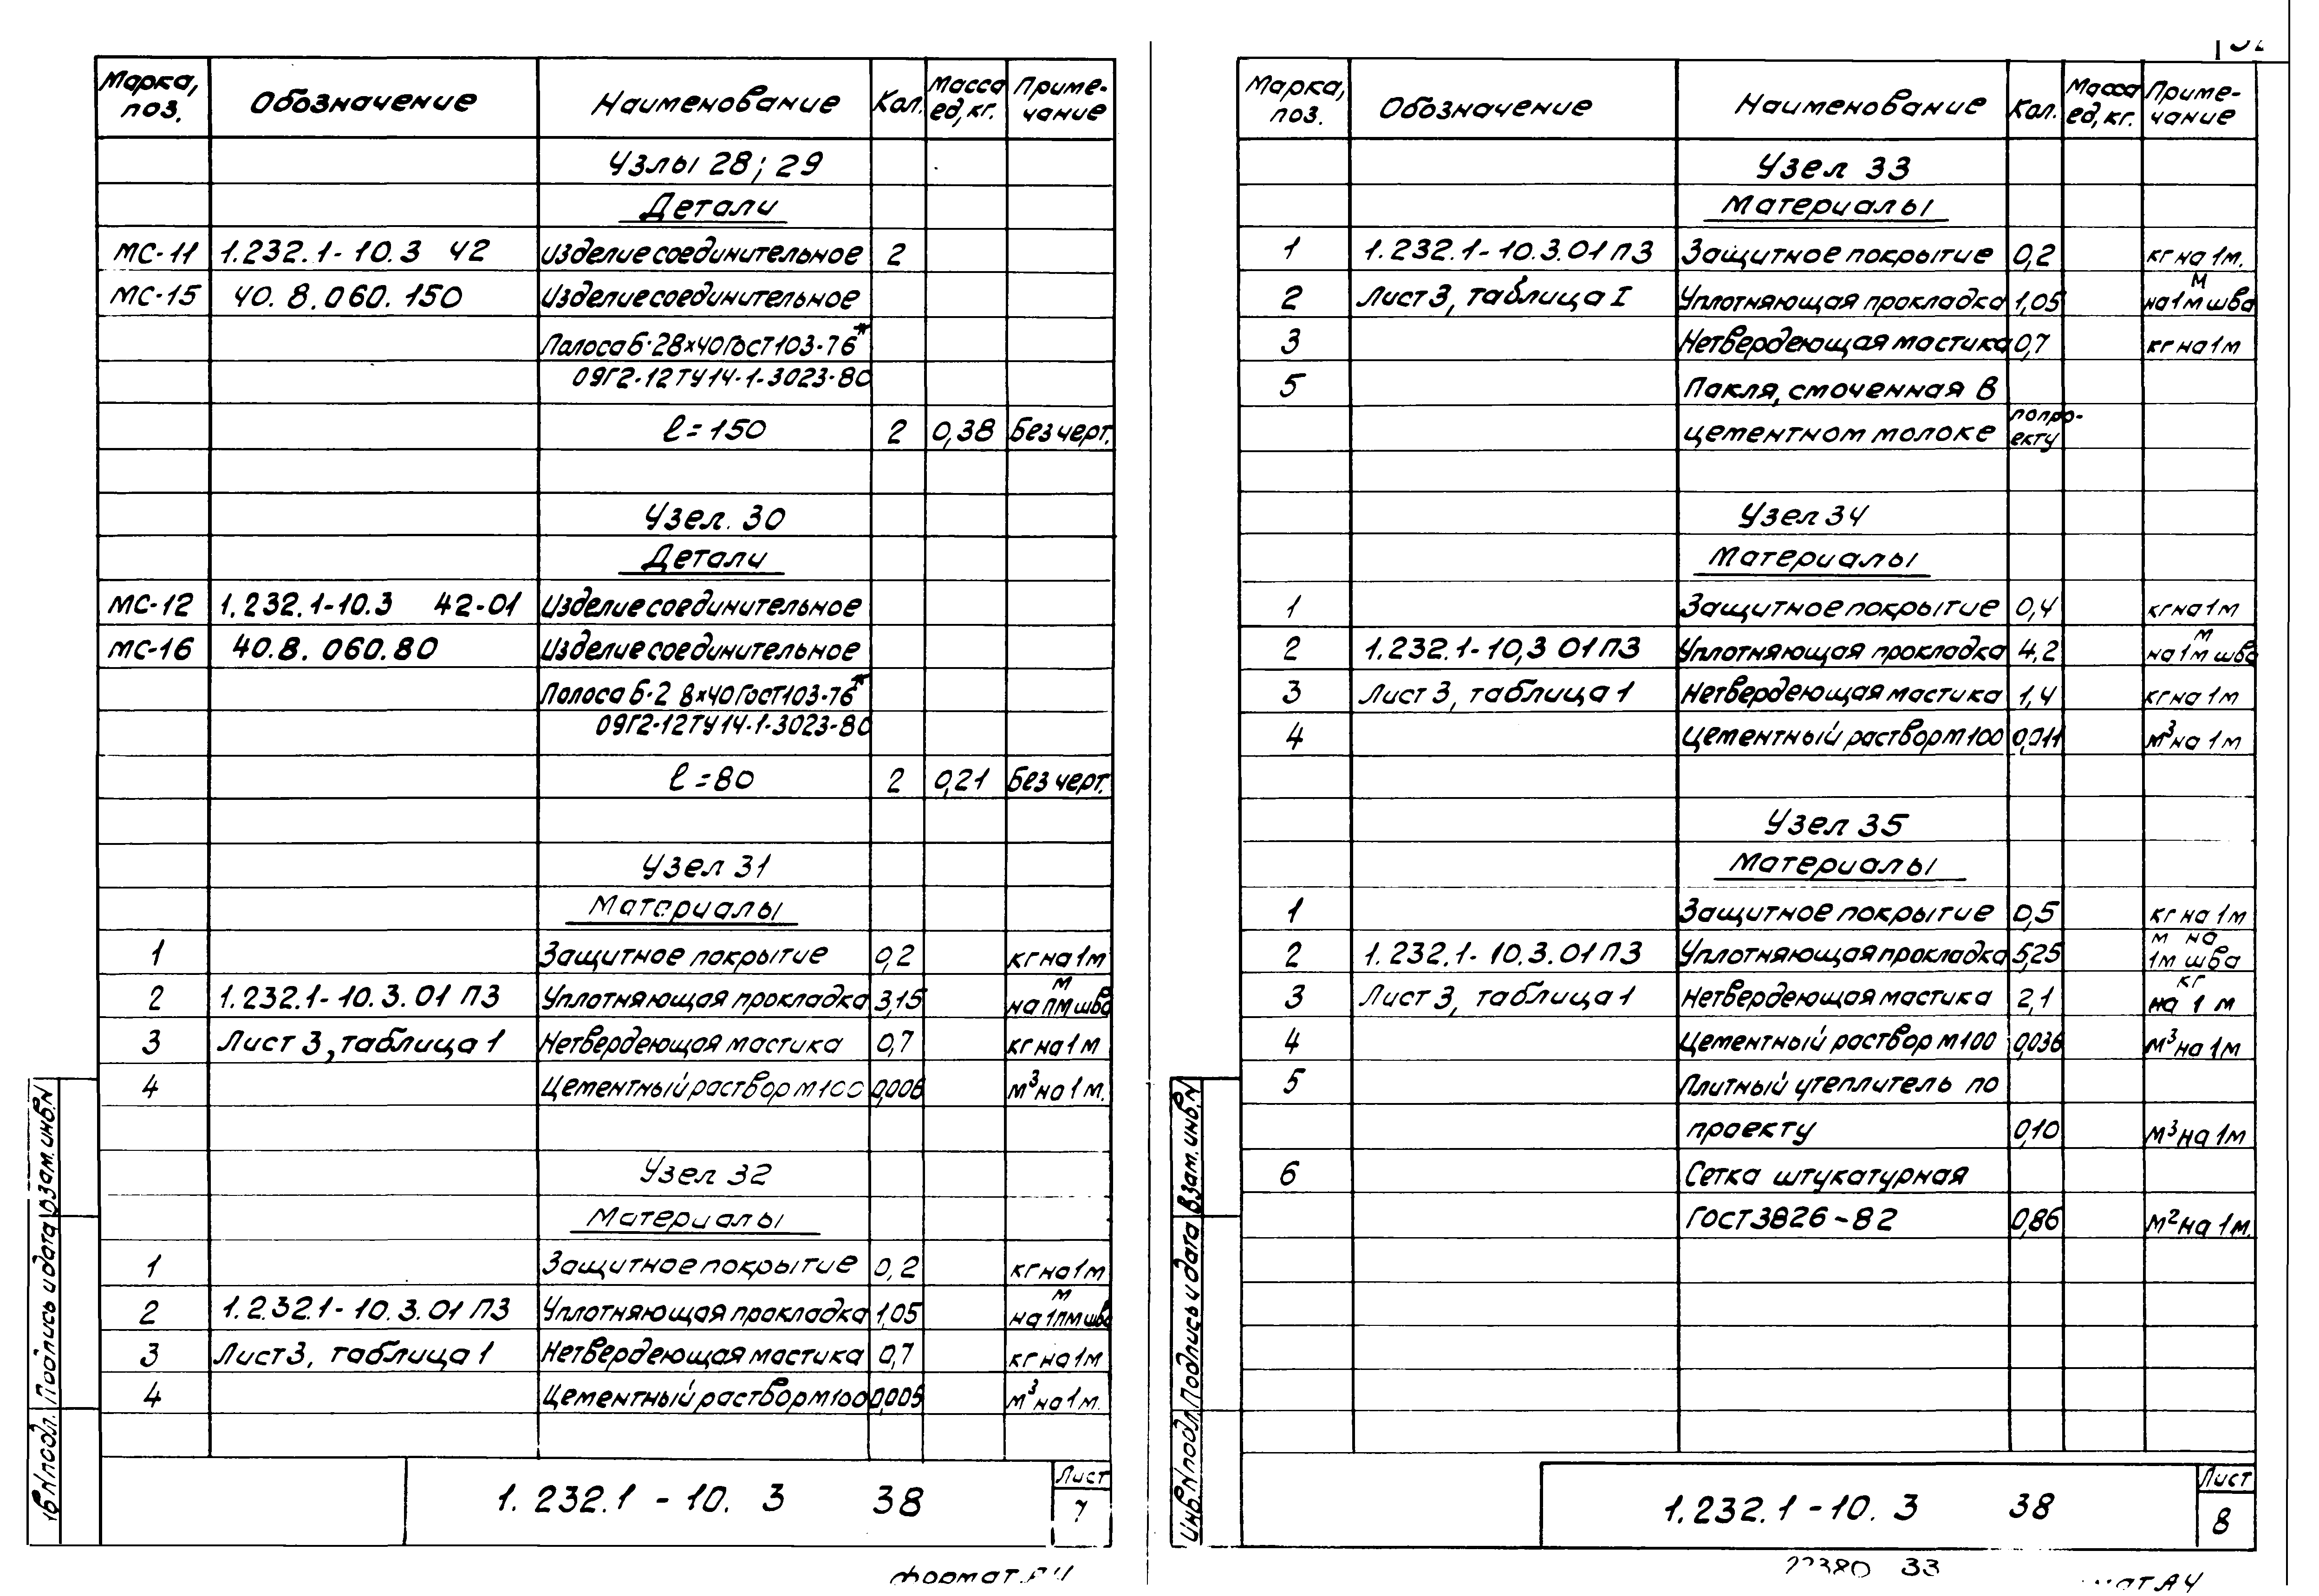 Марка, поз. Обозначение Наименование Кол. Масса ед, кг. Приме-чание
Узлы 28; 29
Детали
МС-11 1.232.1-10.3 42 Изделие соединительное 2
МС-15 40.8.060.150 Изделие соединительное
Полоса Б-2 8×40 ГОСТ 103-76*
09Г2-12 ТУ 14-1-3023-80
ℓ=150 2 0,38 Без черт.
Узел. 30
Детали
МС-12 1.232.1-10.3 42-01 Изделие соединительное
МС-16 40.8.060.80 Изделие соединительное
Полоса Б-2 8×40 ГОСТ 103-76*
09Г2-12 ТУ 14-1-3023-80
ℓ=80 2 0,21 Без черт.
Узел 31
Материалы
1 Защитное покрытие 0,2 кг на 1м
2 1.232.1-10.3.01 ПЗ Уплотняющая прокладка 3,15 м на пм шва
3 Лист 3, таблица 1 Нетвердеющая мастика 0,7 кг на 1м
4 Цементный раствор М100 0,006 м³ на 1м.
Узел 32
Материалы
1 Защитное покрытие 0,2 кг на 1м
2 1.232.1-10.3.01 ПЗ Уплотняющая прокладка 1,05 м на 1пм шва
3 Лист 3, таблица 1 Нетвердеющая мастика 0,7 кг на 1м
4 Цементный раствор М100 0,005 м³ на 1м.
1.232.1-10.3 38
Лист
7
Подпись и дата Взам. инв. N
формат А4
Марка, поз. Обозначение Наименование Кол. Масса ед, кг. Приме-чание
Узел 33
Материалы
1 1.232.1-10.3.01 ПЗ Защитное покрытие 0,2 кг на 1м.
2 Лист 3, таблица I Уплотняющая прокладка 1,05 м на 1м шва
3 Нетвердеющая мастика 0,7 кг на 1м
5 Пакля, смоченная в
цементном молоке по про-екту
Узел 34
Материалы
1 Защитное покрытие 0,4 кг на 1м
2 1.232.1-10,3 01 ПЗ Уплотняющая прокладка 4,2 м на 1м шва
3 Лист 3, таблица 1 Нетвердеющая мастика 1,4 кг на 1м
4 Цементный раствор М100 0,011 м³ на 1м
Узел 35
Материалы
1 Защитное покрытие 0,5 кг на 1м
2 1.232.1-10.3.01 ПЗ Уплотняющая прокладка 5,25 м на 1м шва
3 Лист 3, таблица 1 Нетвердеющая мастика 2,1 кг на 1 м
4 Цементный раствор М100 0,036 м³ на 1м
5 Плитный утеплитель по
проекту 0,10 м³ на 1м
6 Сетка штукатурная
ГОСТ 3826-82 0,86 м² на 1м.
1.232.1-10.3 38
Лист
8
Инв. N подл. Подпись и дата Взам. инв. N
33
А4